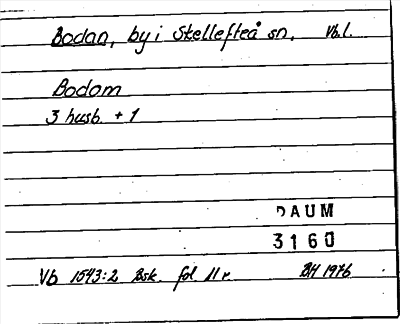 Bodan, by i Skellefteå sn, Vb.l.
Bodom
3 husb. + 1
DAUM
3160
Vb 1543:2 Bsk. fol. 11r. BH 1976